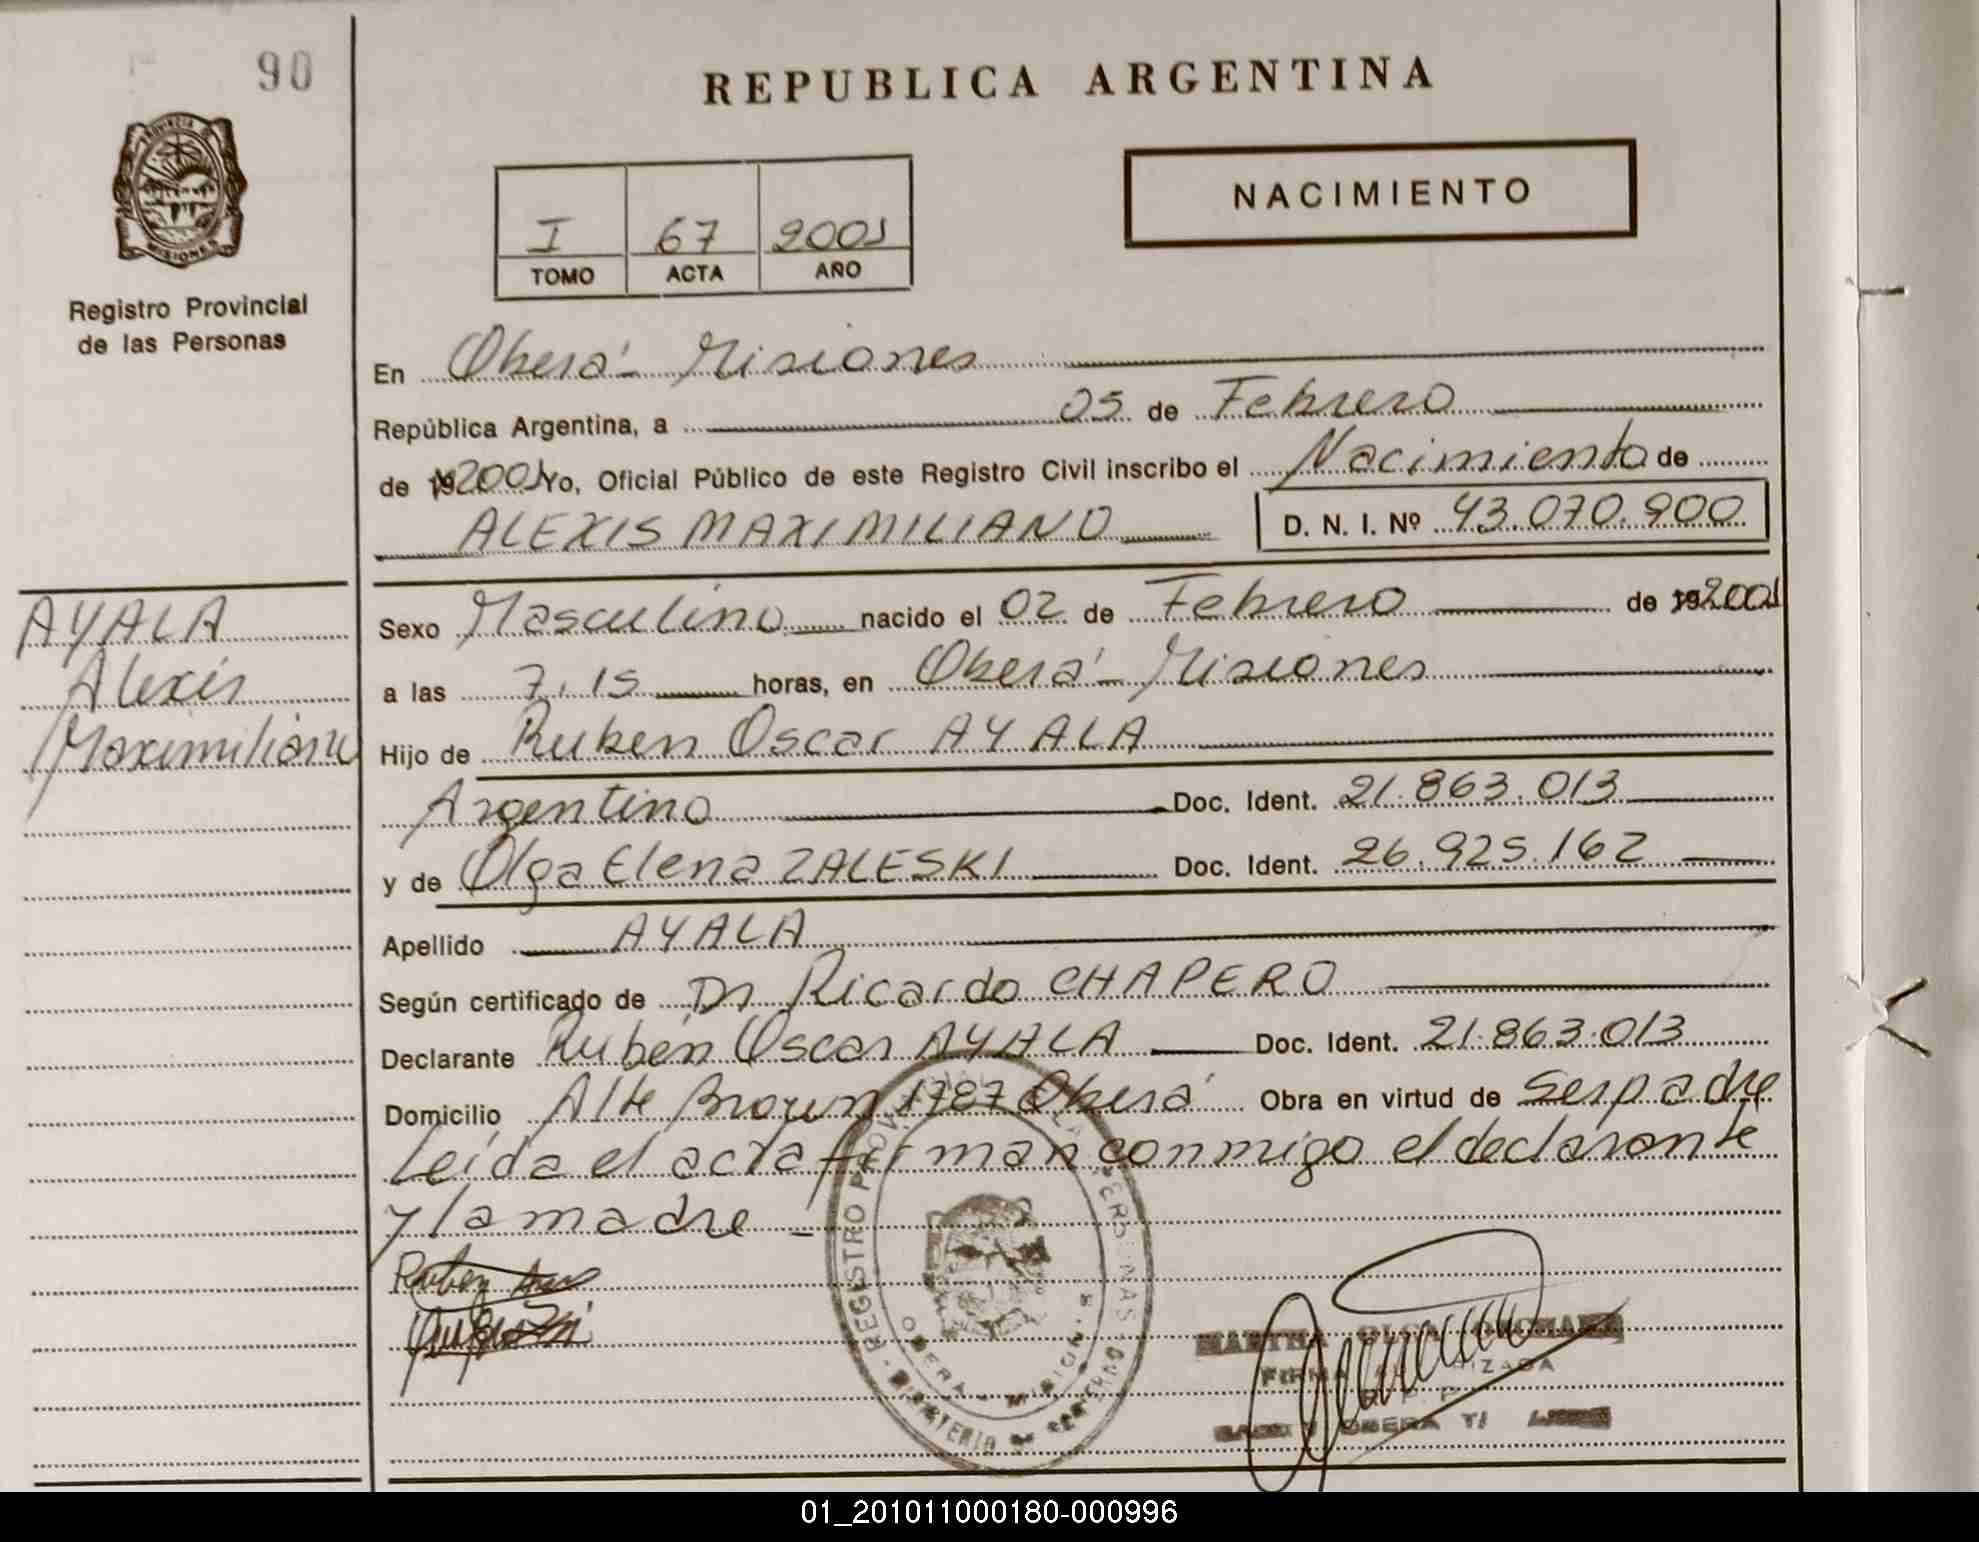 90
REPUBLICA ARGENTINA
PROVINCIA DE
MISIONES
Registro Provincial
de las Personas
NACIMIENTO
I 67 2001
TOMO ACTA AÑO
En Oberá - Misiones
República Argentina, a 05 de Febrero
de 192001 Yo, Oficial Público de este Registro Civil inscribo el Nacimiento de
ALEXIS MAXIMILIANO D. N. I. Nº 43.070.900
AYALA
Alexis
Maximiliano
Sexo Masculino nacido el 02 de Febrero de 192001
a las 7,15 horas, en Oberá - Misiones
Hijo de Ruben Oscar AYALA
Argentino Doc. Ident. 21.863.013
y de Olga Elena ZALESKI Doc. Ident. 26.925.162
Apellido AYALA
Según certificado de Dr Ricardo CHAPERO
Declarante Rubén Oscar AYALA Doc. Ident. 21.863.013
Domicilio Alte Brown 1787 Oberá Obra en virtud de Ser padre
Leída el acta firman conmigo el declarante
y la madre -
REGISTRO PROVINCIAL DE LAS PERSONAS
OBERA - MISIONES
Ruben
MARTHA OLGA
FIRMA AUTORIZADA
OBERA
01_201011000180-000996